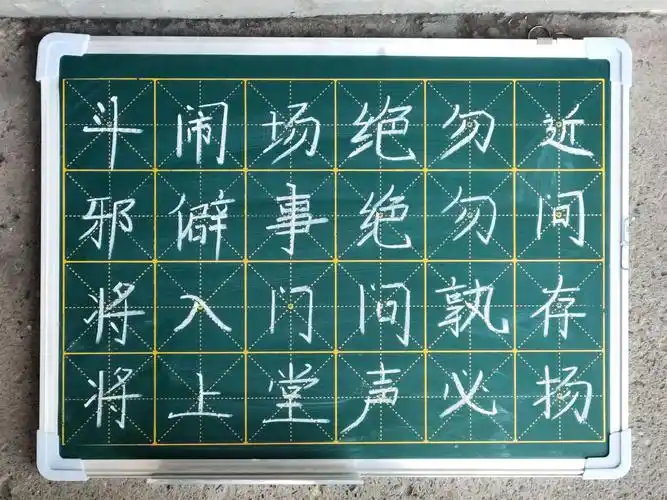 斗闹场绝勿近
邪僻事绝勿问
将入门问孰存
将上堂声必扬